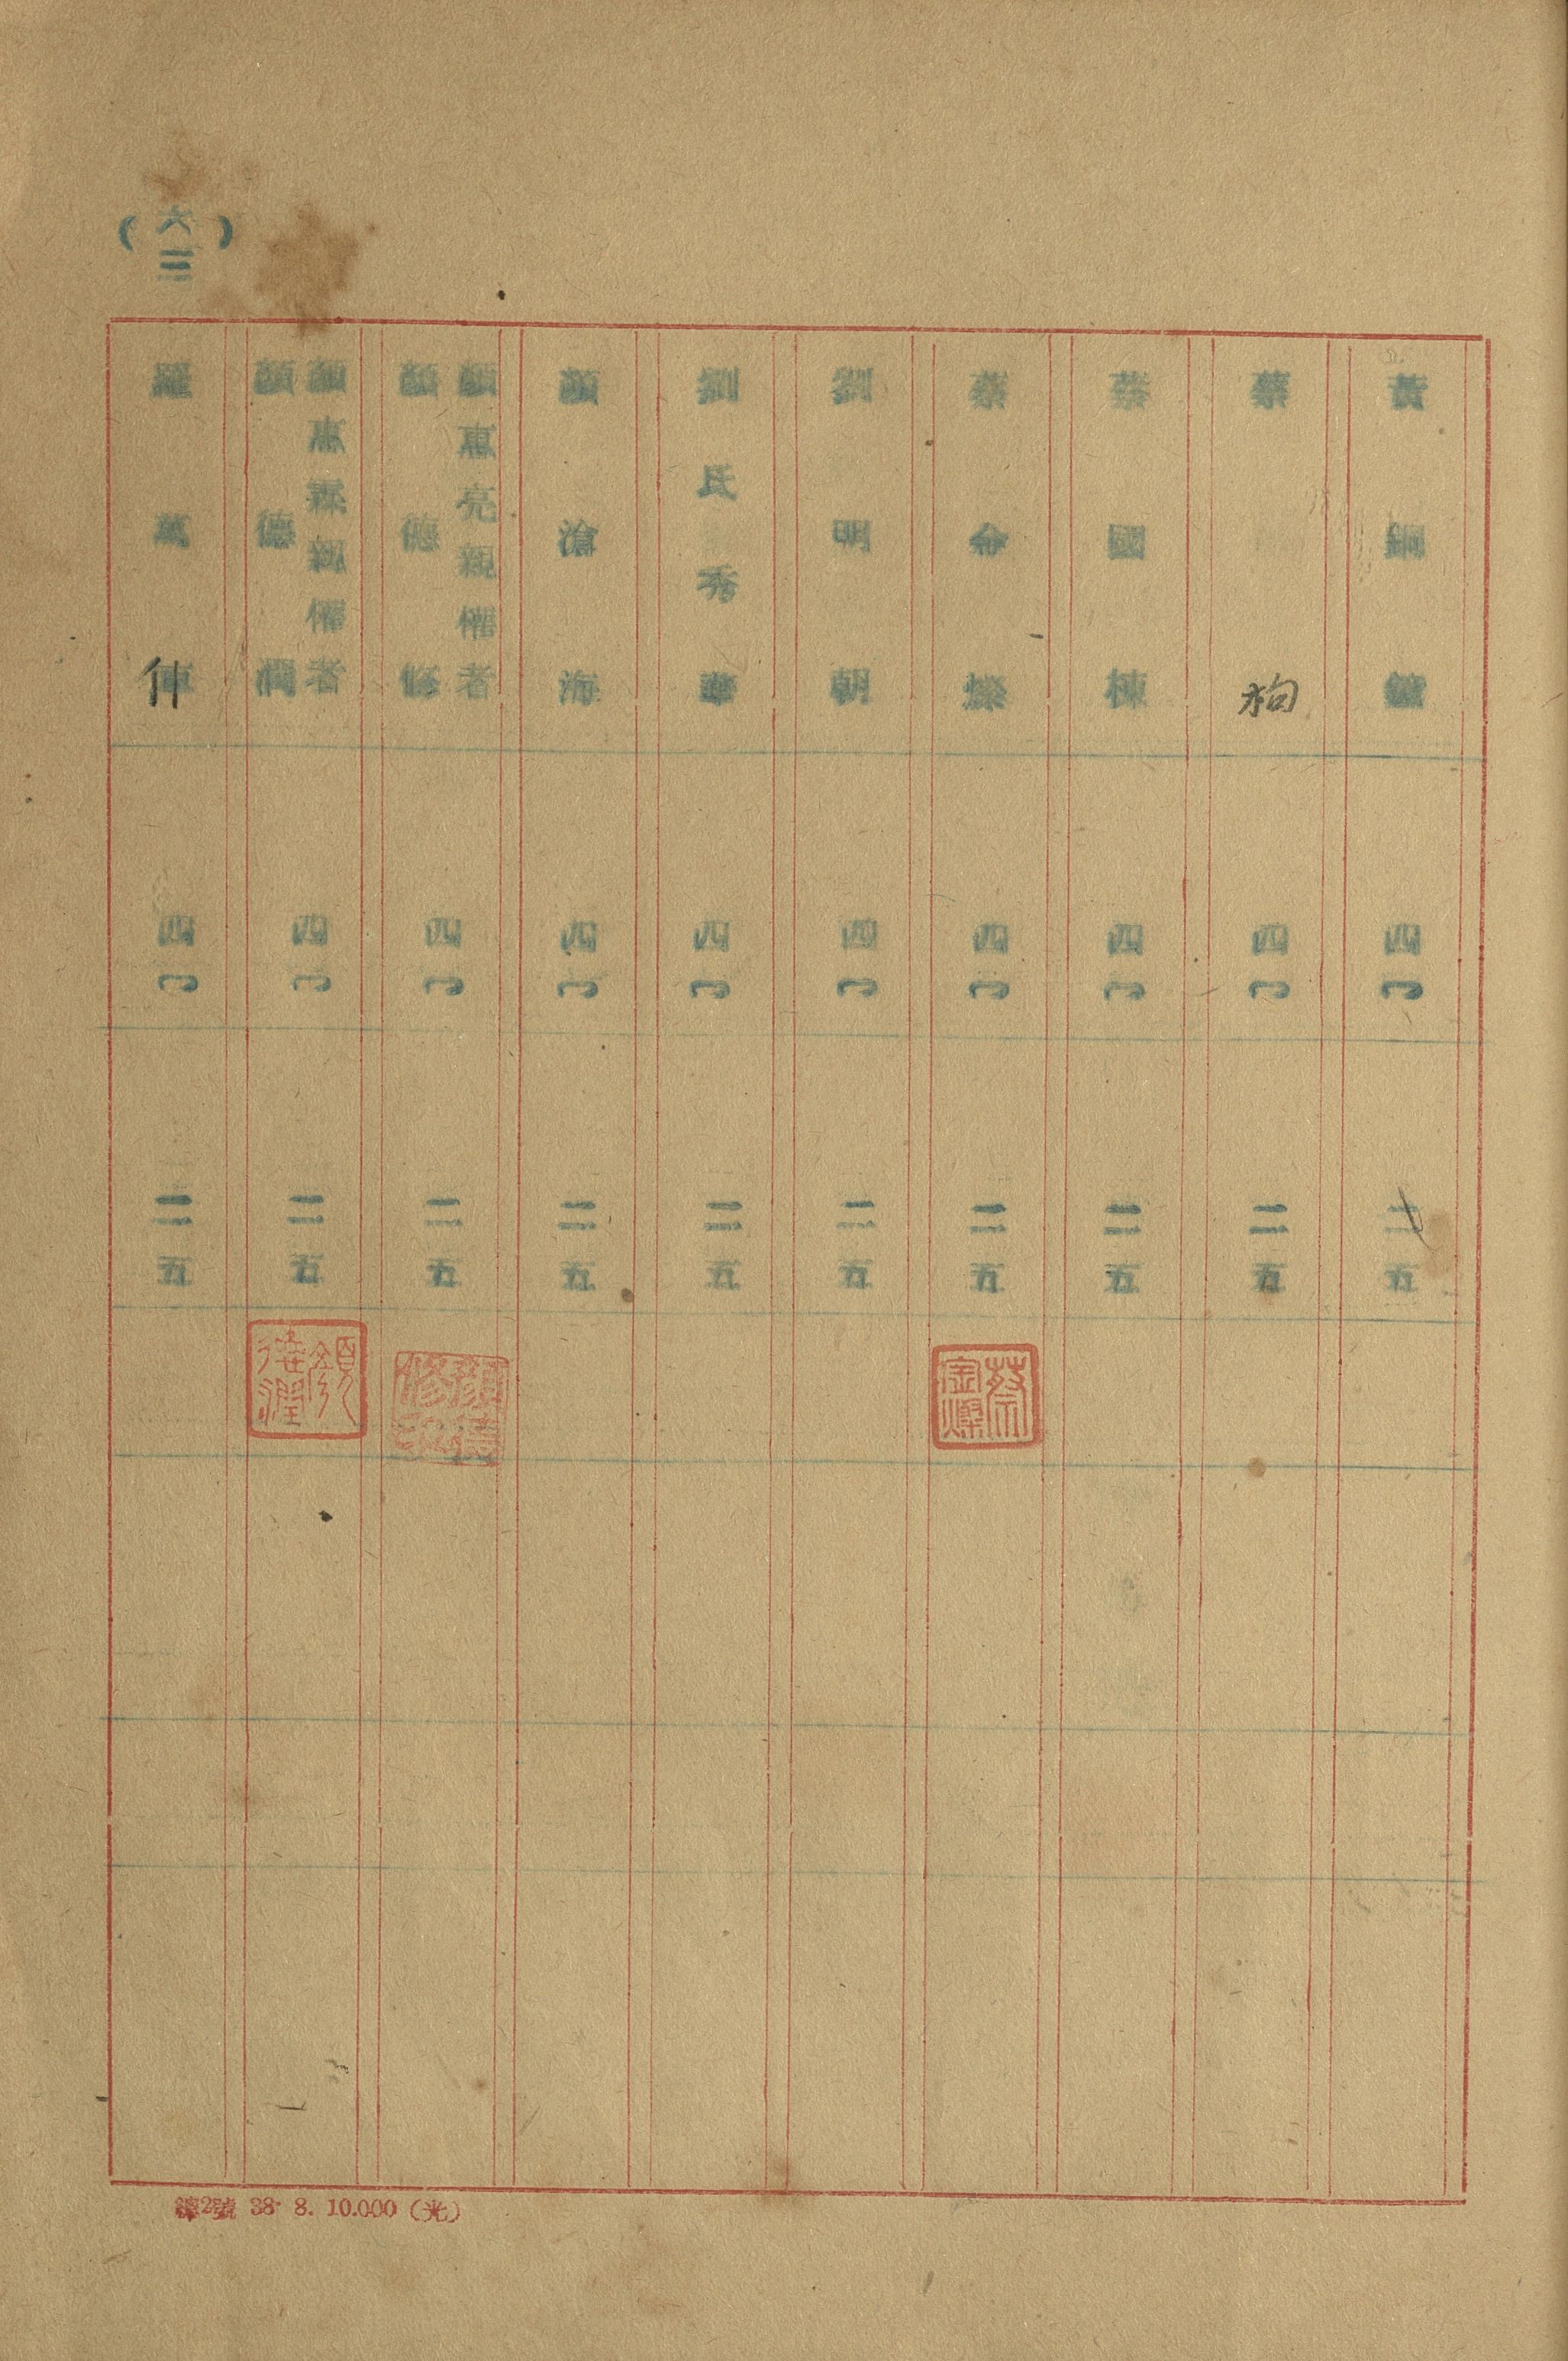 (六三)
黃銅鐘 四〇 二五
蔡枸 四〇 二五
蔡國棟 四〇 二五
蔡金燦 四〇 二五 蔡金燦
劉明朝 四〇 二五
劉氏秀華 四〇 二五
顏滄海 四〇 二五
顏惠亮親權者
顏德修 四〇 二五 顏德修
顏惠霖親權者
顏德潤 四〇 二五 顏德潤
羅萬俥 四〇 二五
38 8. 10.000 (光)